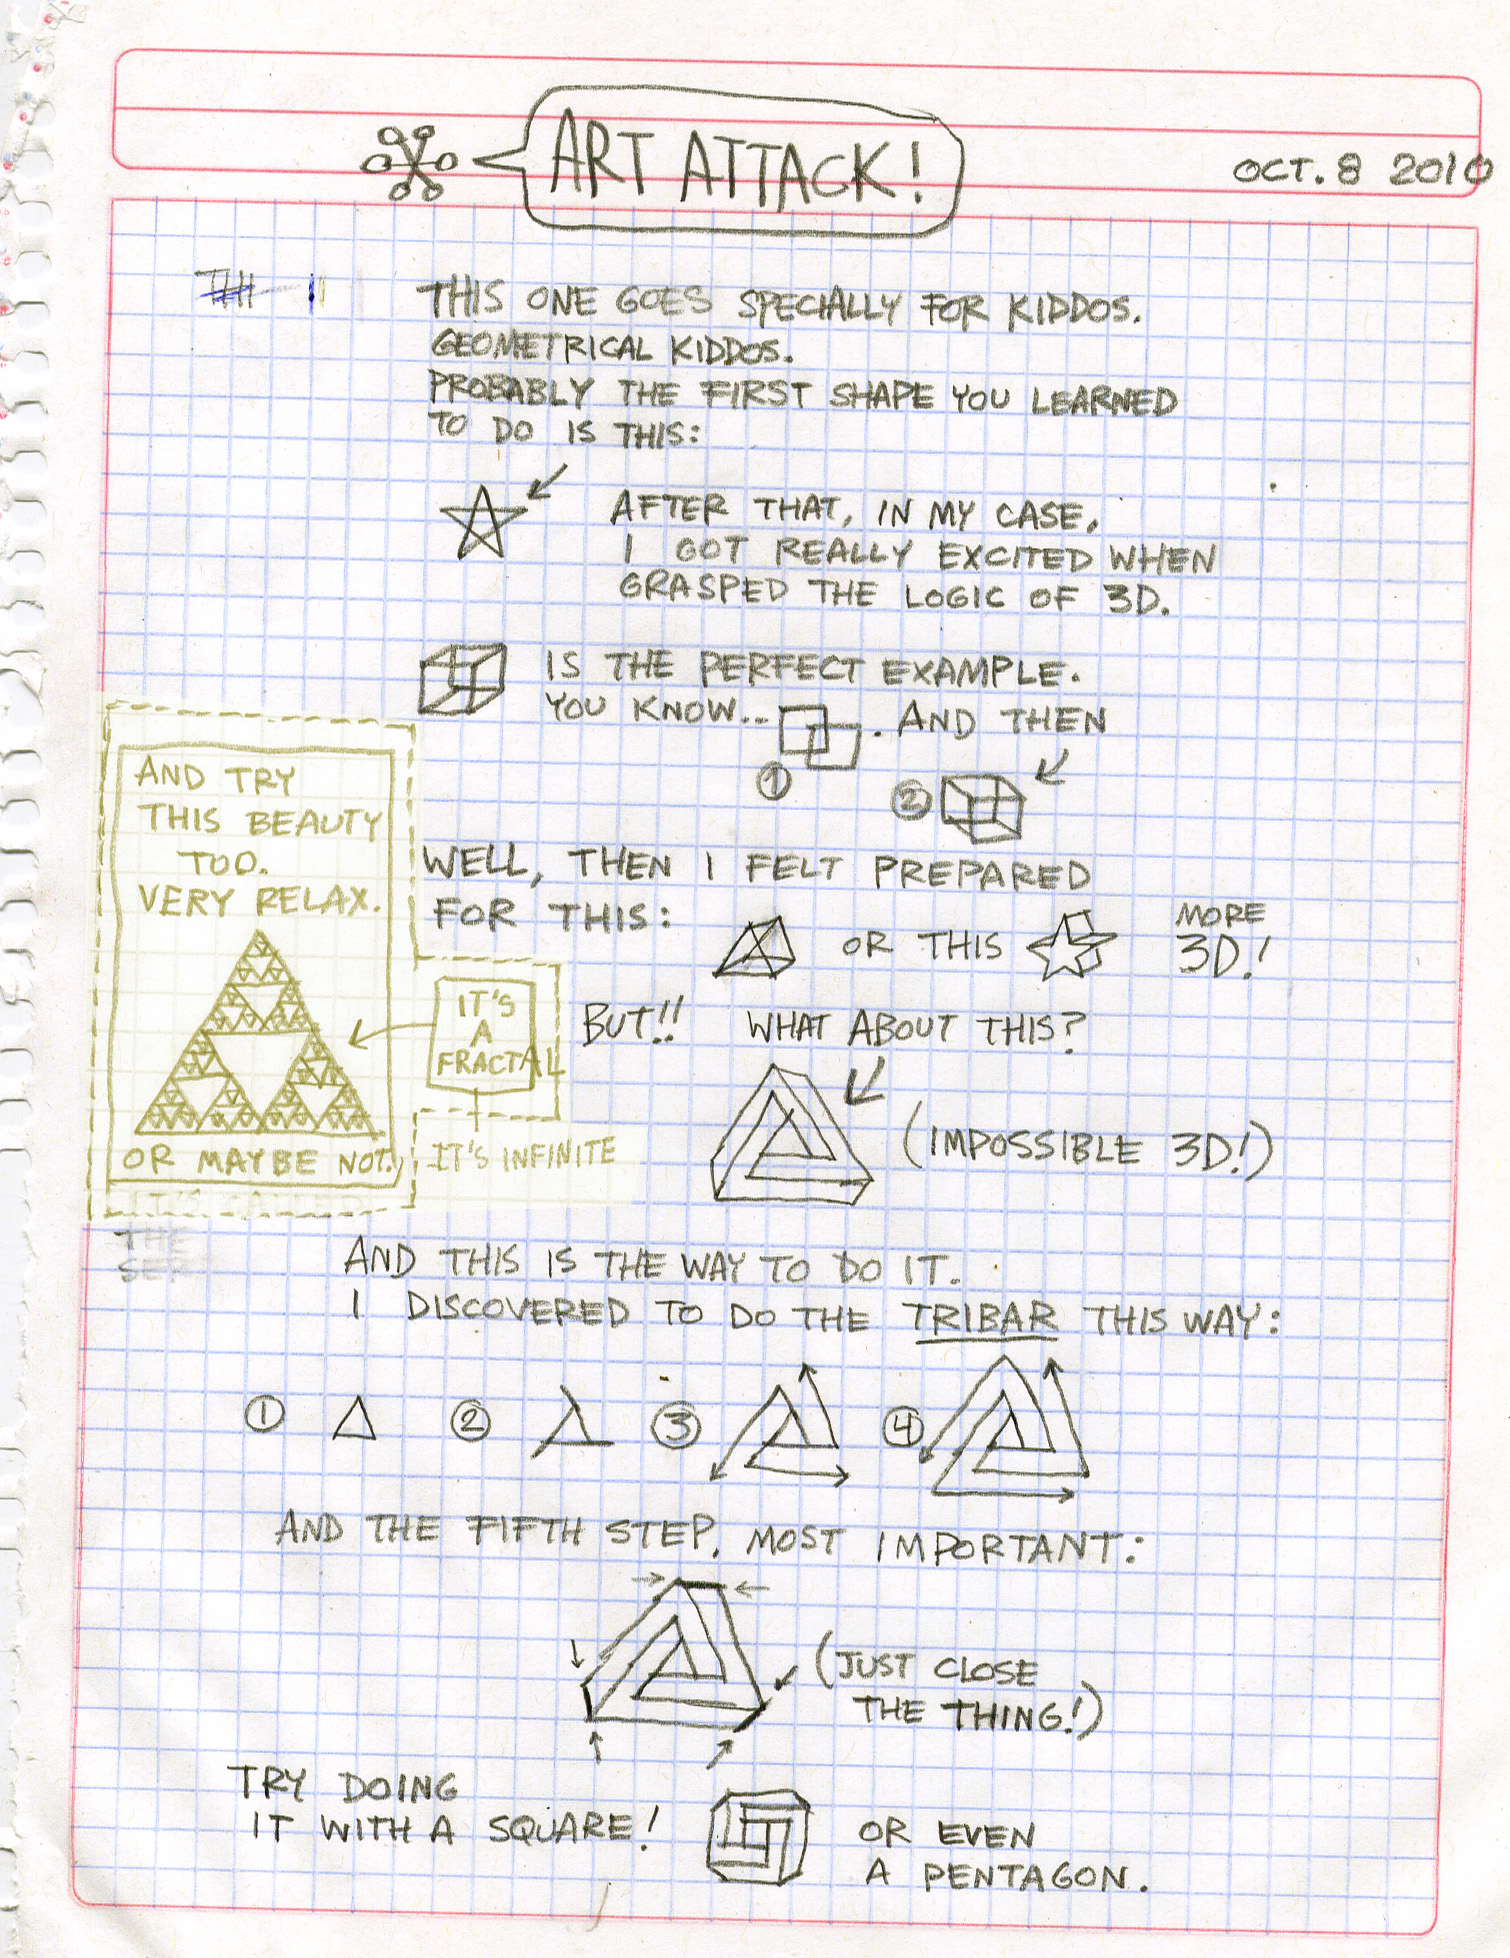 ART ATTACK!
OCT. 8 2010
THIS ONE GOES SPECIALLY FOR KIDDOS.
GEOMETRICAL KIDDOS.
PROBABLY THE FIRST SHAPE YOU LEARNED
TO DO IS THIS:
AFTER THAT, IN MY CASE,
I GOT REALLY EXCITED WHEN
GRASPED THE LOGIC OF 3D.
IS THE PERFECT EXAMPLE.
YOU KNOW... . AND THEN
1
2
WELL, THEN I FELT PREPARED
FOR THIS:
OR THIS
MORE
3D!
BUT!! WHAT ABOUT THIS?
(IMPOSSIBLE 3D!)
AND TRY
THIS BEAUTY
TOO.
VERY RELAX.
IT'S
A
FRACTAL
OR MAYBE NOT.
IT'S INFINITE
THE
SER
AND THIS IS THE WAY TO DO IT.
I DISCOVERED TO DO THE TRIBAR THIS WAY:
1 2 3 4
AND THE FIFTH STEP, MOST IMPORTANT:
(JUST CLOSE
THE THING!)
TRY DOING
IT WITH A SQUARE!
OR EVEN
A PENTAGON.